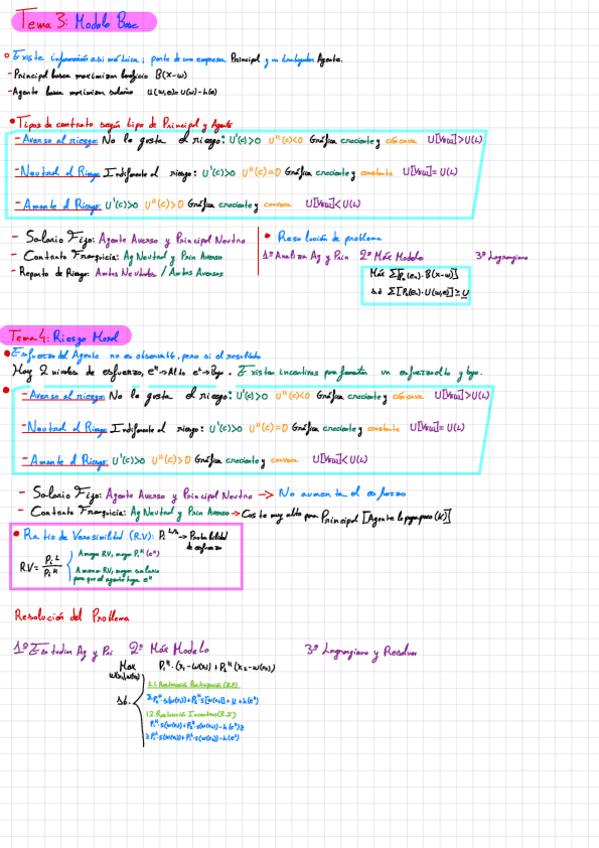 Tema 3: Modelo Base
Existe información asimétrica; parte de una empresa Principal y un trabajador Agente.
- Principal busca maximizar beneficio B(x-w)
- Agente busca maximizar salario U(w,e)=U(w)-h(e)
• Tipos de contrato según tipo de Principal y Agente
- Averso al riesgo: No le gusta el riesgo: U'(c)>0 U''(c)<0 Gráfica creciente y cóncava U[VE(L)]>U(L)
- Neutral al Riesgo: Indiferente al riesgo: U'(c)>0 U''(c)=0 Gráfica creciente y constante U[VE(L)]=U(L)
- Amante al Riesgo: U'(c)>0 U''(c)>0 Gráfica creciente y convexa U[VE(L)]<U(L)
- Salario Fijo: Agente Averso y Principal Neutro
- Contrato Franquicia: Ag Neutral y Prin Averso
- Reparto de Riesgo: Ambos Neutrales / Ambos Aversos
• Resolución de problema
1º Analizar Ag y Prin 2º Máx Modelo 3º Lagrangiano
Máx Σ[Pi(e)·B(x-w)]
s.a Σ[Pi(e)·U(w,e)]≥U
Tema 4: Riesgo Moral
• Esfuerzo del Agente no es observable, pero si el resultado
Hay 2 niveles de esfuerzo, eᴴ→Alto eᴸ→Bajo. Existen incentivos para fomentar un esfuerzo alto y bajo.
- Averso al riesgo: No le gusta el riesgo: U'(c)>0 U''(c)<0 Gráfica creciente y cóncava U[VE(L)]>U(L)
- Neutral al Riesgo: Indiferente al riesgo: U'(c)>0 U''(c)=0 Gráfica creciente y constante U[VE(L)]=U(L)
- Amante al Riesgo: U'(c)>0 U''(c)>0 Gráfica creciente y convexa U[VE(L)]<U(L)
- Salario Fijo: Agente Averso y Principal Neutro → No aumenta el esfuerzo
- Contrato Franquicia: Ag Neutral y Prin Averso → Coste muy alto para Principal [Agente le paga pago (K)]
• Ratio de Verosimilitud (R.V): Pi ᴸ/ᴴ → Probabilidad de esfuerzo
R.V = Piᴸ / Piᴴ
A mayor R.V, mayor Piᴸ (eᴸ)
A menor R.V, mayor salario
para que el agente haga eᴴ
Resolución del Problema
1º Estudiar Ag y Pri 2º Máx Modelo 3º Lagrangiano y Resolver
Max P₁ᴴ·(x₁-w(x₁))+P₂ᴴ(x₂-w(x₂))
w(x₁),w(x₂)
s.a.
1.1. Restricción Participación (R.P)
1.2. Restricción Incentivos (R.I)